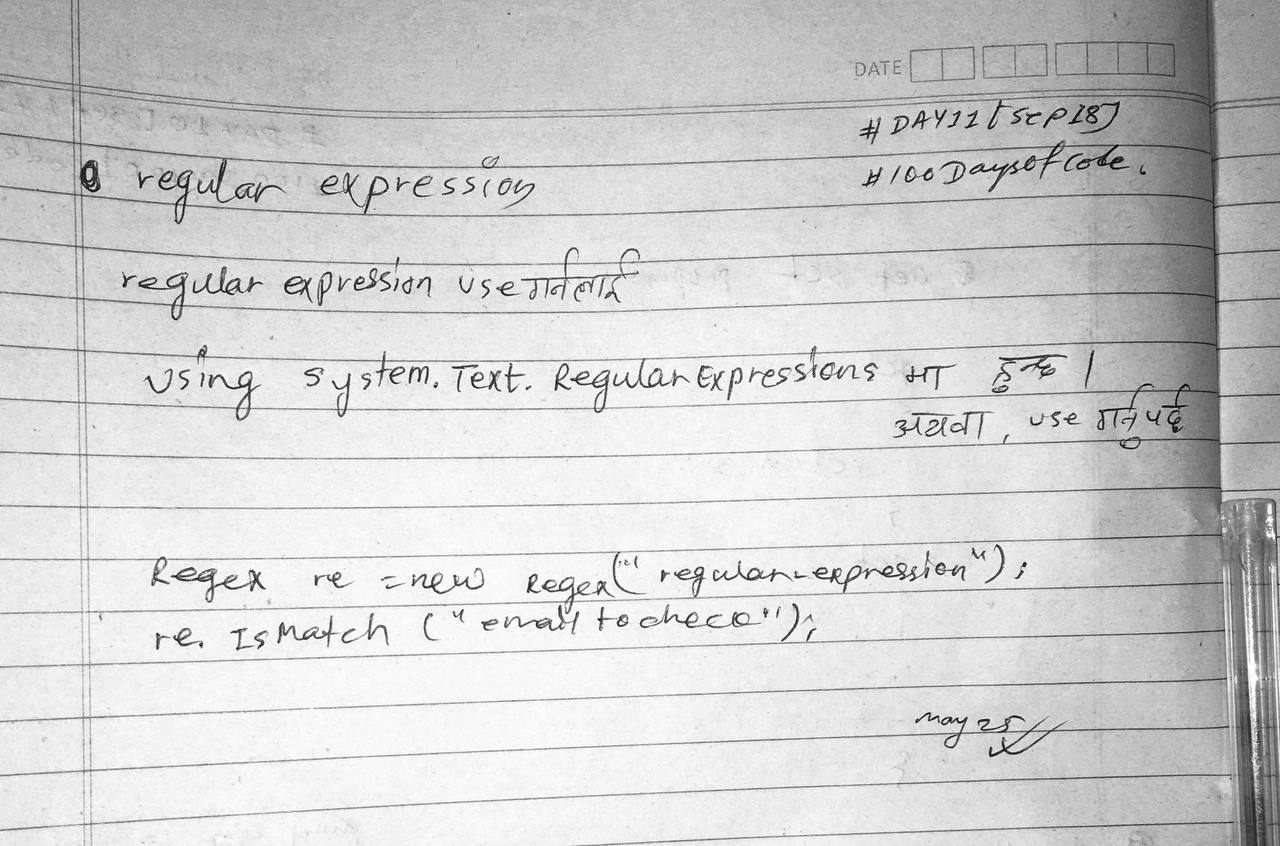 DATE
# DAY11 [Sep 18]
# 100DaysofCode.
regular expression
regular expression use गर्नलाई
Using system.Text.RegularExpressions मा हुन्छ ।
अथवा, use गर्नु पर्छ
Regex re = new Regex("regular-expression");
re. IsMatch ("email to check");
may 25